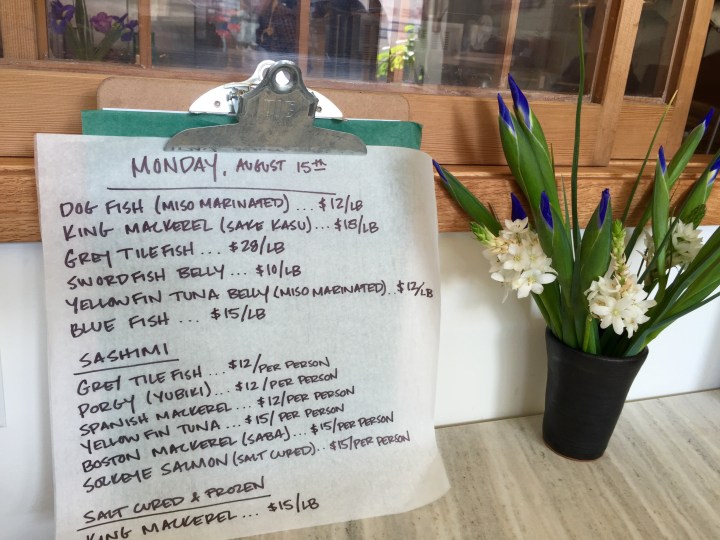 MONDAY, AUGUST 15TH
DOG FISH (MISO MARINATED) ... $12/LB
KING MACKEREL (SAKE KASU) ... $18/LB
GREY TILEFISH ... $28/LB
SWORDFISH BELLY ... $10/LB
YELLOWFIN TUNA BELLY (MISO MARINATED) .. $12/LB
BLUE FISH ... $15/LB
SASHIMI
GREY TILEFISH ... $12/PER PERSON
PORGY (YUBIKI) ... $12/PER PERSON
SPANISH MACKEREL ... $12/PER PERSON
YELLOWFIN TUNA ... $15/PER PERSON
BOSTON MACKEREL (SABA) ... $15/PER PERSON
SOCKEYE SALMON (SALT CURED) .. $15/PER PERSON
SALT CURED & FROZEN
KING MACKEREL ... $15/LB